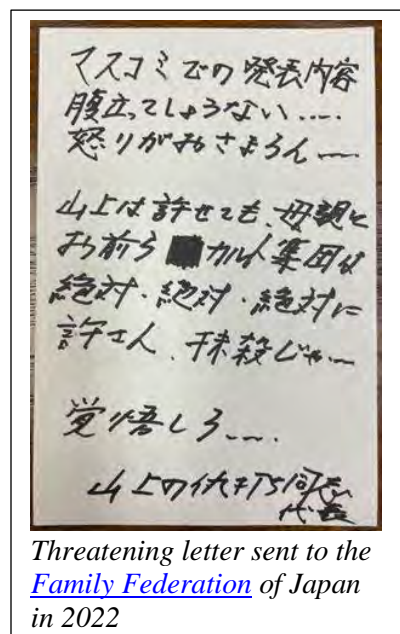 マスコミでの発表内容
腹立ってしょうない....
怒りがおさまらん〜
山上は許せても、母親と
お前らカルト集団は
絶対・絶対・絶対に
許さん、抹殺じゃ〜
覚悟しろ....
山上の仇打ち同志
代表
Threatening letter sent to the
Family Federation of Japan
in 2022